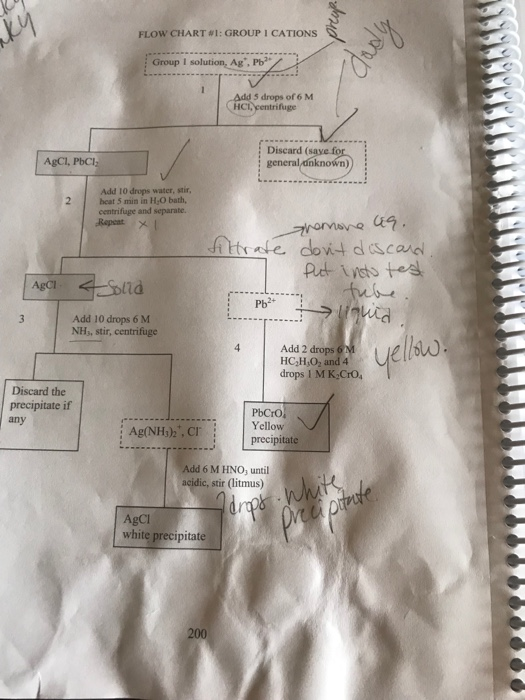 KY
FLOW CHART #1: GROUP 1 CATIONS
Group 1 solution, Ag⁺, Pb²⁺
1
Add 5 drops of 6 M
HCl, centrifuge
Discard (save for
general unknown)
AgCl, PbCl₂
2
Add 10 drops water, stir,
heat 5 min in H₂O bath,
centrifuge and separate.
Repeat x 1
→ remove aq.
filtrate don't discard.
Put into test
tube.
AgCl ← Solid
Pb²⁺ → liquid
3
Add 10 drops 6 M
NH₃, stir, centrifuge
4
Add 2 drops 6 M
HC₂H₃O₂ and 4
drops 1 M K₂CrO₄
yellow.
Discard the
precipitate if
any
Ag(NH₃)₂⁺, Cl⁻
PbCrO₄
Yellow
precipitate
Add 6 M HNO₃ until
acidic, stir (litmus)
7 drops. White
precipitate.
AgCl
white precipitate
200